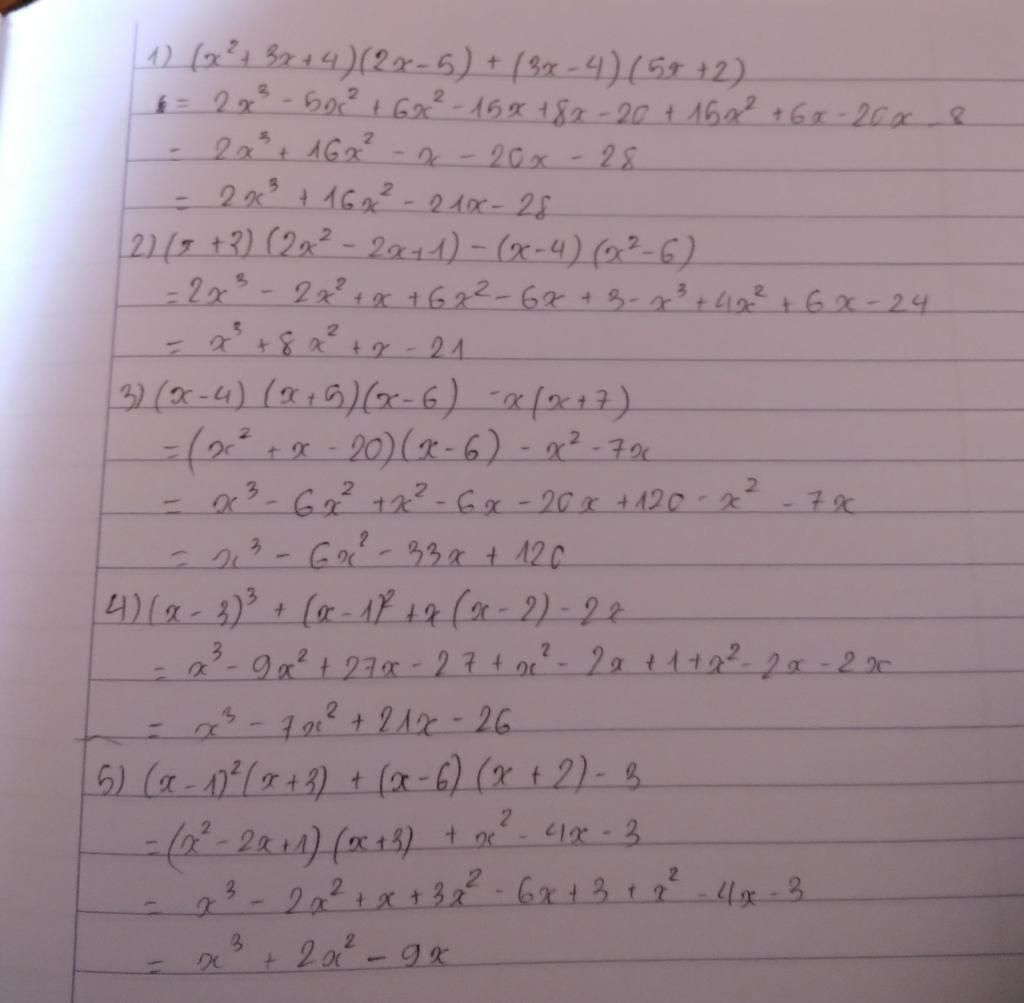 1) (x² + 3x + 4)(2x - 5) + (3x - 4)(5x + 2)
= 2x³ - 5x² + 6x² - 15x + 8x - 20 + 15x² + 6x - 20x - 8
= 2x³ + 16x² - x - 20x - 28
= 2x³ + 16x² - 21x - 28
2) (x + 3)(2x² - 2x + 1) - (x - 4)(x² - 6)
= 2x³ - 2x² + x + 6x² - 6x + 3 - x³ + 4x² + 6x - 24
= x³ + 8x² + x - 21
3) (x - 4)(x + 5)(x - 6) - x(x + 7)
= (x² + x - 20)(x - 6) - x² - 7x
= x³ - 6x² + x² - 6x - 20x + 120 - x² - 7x
= x³ - 6x² - 33x + 120
4) (x - 3)³ + (x - 1)² + x(x - 2) - 2x
= x³ - 9x² + 27x - 27 + x² - 2x + 1 + x² - 2x - 2x
= x³ - 7x² + 21x - 26
5) (x - 1)²(x + 3) + (x - 6)(x + 2) - 3
= (x² - 2x + 1)(x + 3) + x² - 4x - 3
= x³ - 2x² + x + 3x² - 6x + 3 + x² - 4x - 3
= x³ + 2x² - 9x